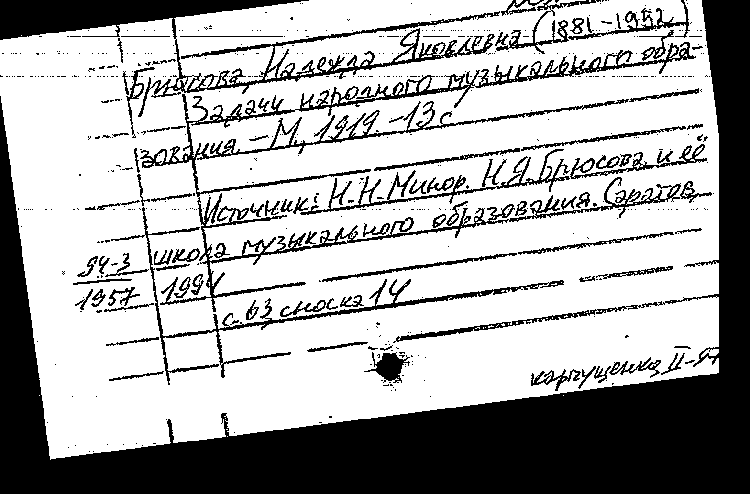 Брюсова, Надежда Яковлевна (1881-1952)
Задачи народного музыкального обра-
зования. -М., 1919. -13 с
Источник: Н.Н. Минор. Н.Я. Брюсова и её
94-3 школа музыкального образования. Саратов,
1957 1994
с. 63, сноска 14
II-97